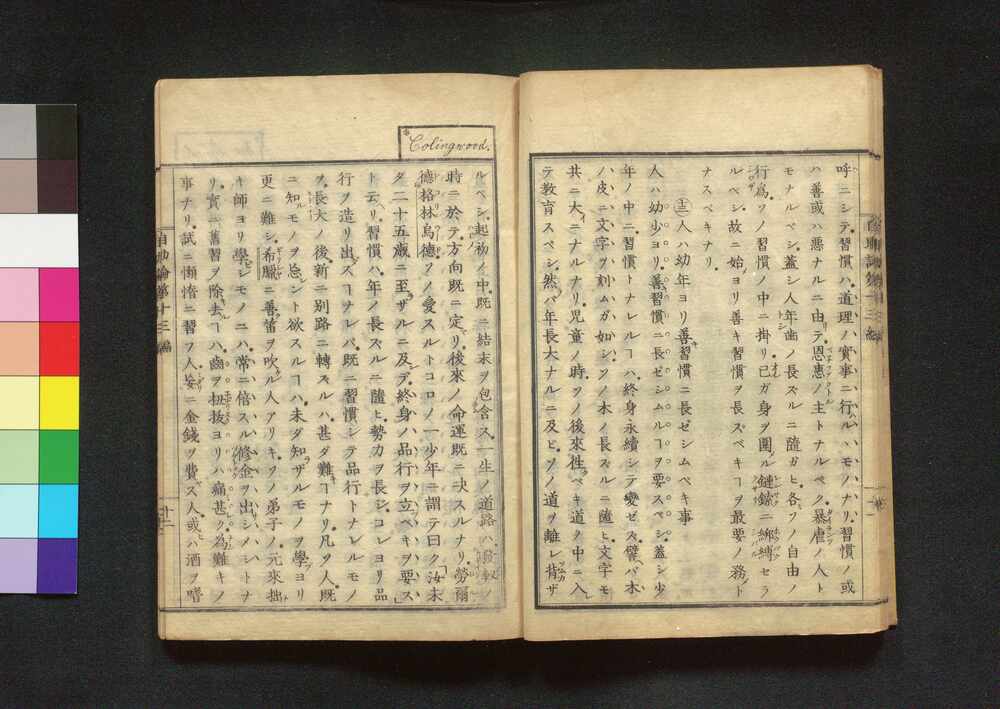 呼ニシテ習慣ハ道理ノ實事ニ行ルハモノナリ習慣ノ或
ハ善或ハ悪ナルニ由テ恩惠ノ主トナルベク暴虐ノ人ト
モナルベシ蓋シ人年歯ノ長スルニ隨ガヒ各ソノ自由ノ
行為ソノ習慣ノ中ニ掛リ已ガ身ヲ圍ル鏈鎖ニ綁縛セラ
ルベシ故ニ始ヨリ善キ習慣ヲ長スベキヿヲ最要ノ務ト
ナスベキナリ
㊉三人ハ幼年ヨリ善習慣ニ長ゼシムベキ事
人ハ幼少ヨリ善習慣ニ長ゼシムルヿヲ要スベシ蓋シ少
年ノ中ニ習慣トナレルヿハ終身永續シテ變ゼズ譬バ木
ノ皮ニ文字ヲ刻ムガ如シソノ木ノ長スルニ隨ヒ文字モ
共ニ大ニナルナリ児童ノ時ソノ後來徃ベキ道ノ中ニ入
テ教育スベシ然バ年長大ナルニ及ヒソノ道ヲ離レ背ザ
Colingwood.
ルベシ起初ノ中既ニ結末ヲ包含ス一生ノ道路ハ發靷ノ
時ニ於テ方向既ニ定リ後來ノ命運既ニ决スルナリ勞爾
德格林烏德ソノ愛スルトコロノ一少年ニ謂テ曰ク「汝末
ダ二十五歳ニ至ザルニ及デ終身ノ品行ヲ立ベキヲ要ス」
ト云リ習慣ハ年ノ長スルニ隨ヒ勢力ヲ長ジコレヨリ品
行ヲ造リ出スヿナレバ既ニ習慣シテ品行トナレルモノ
ヲ長大ノ後新ニ別路ニ轉スルハ甚ダ難キヿナリ凡ソ人既
ニ知ルモノヲ忘ント欲スルヿハ未ダ知ザルモノヲ學ブヨリ
更ニ難シ希臘ニ善笛ヲ吹ル人アリキソノ弟子ノ元來拙
キ師ヨリ學シモノニハ常ニ倍スル修金ヲ出シメシトナ
リ實ニ舊習ヲ除去ルヿハ歯ヲ抜ヨリハ痛甚ク為難キノ
事ナリ試ニ懶惰ニ習フ人妄ニ金錢ヲ費ス人或ハ酒ヲ嗜
自助論第十三編